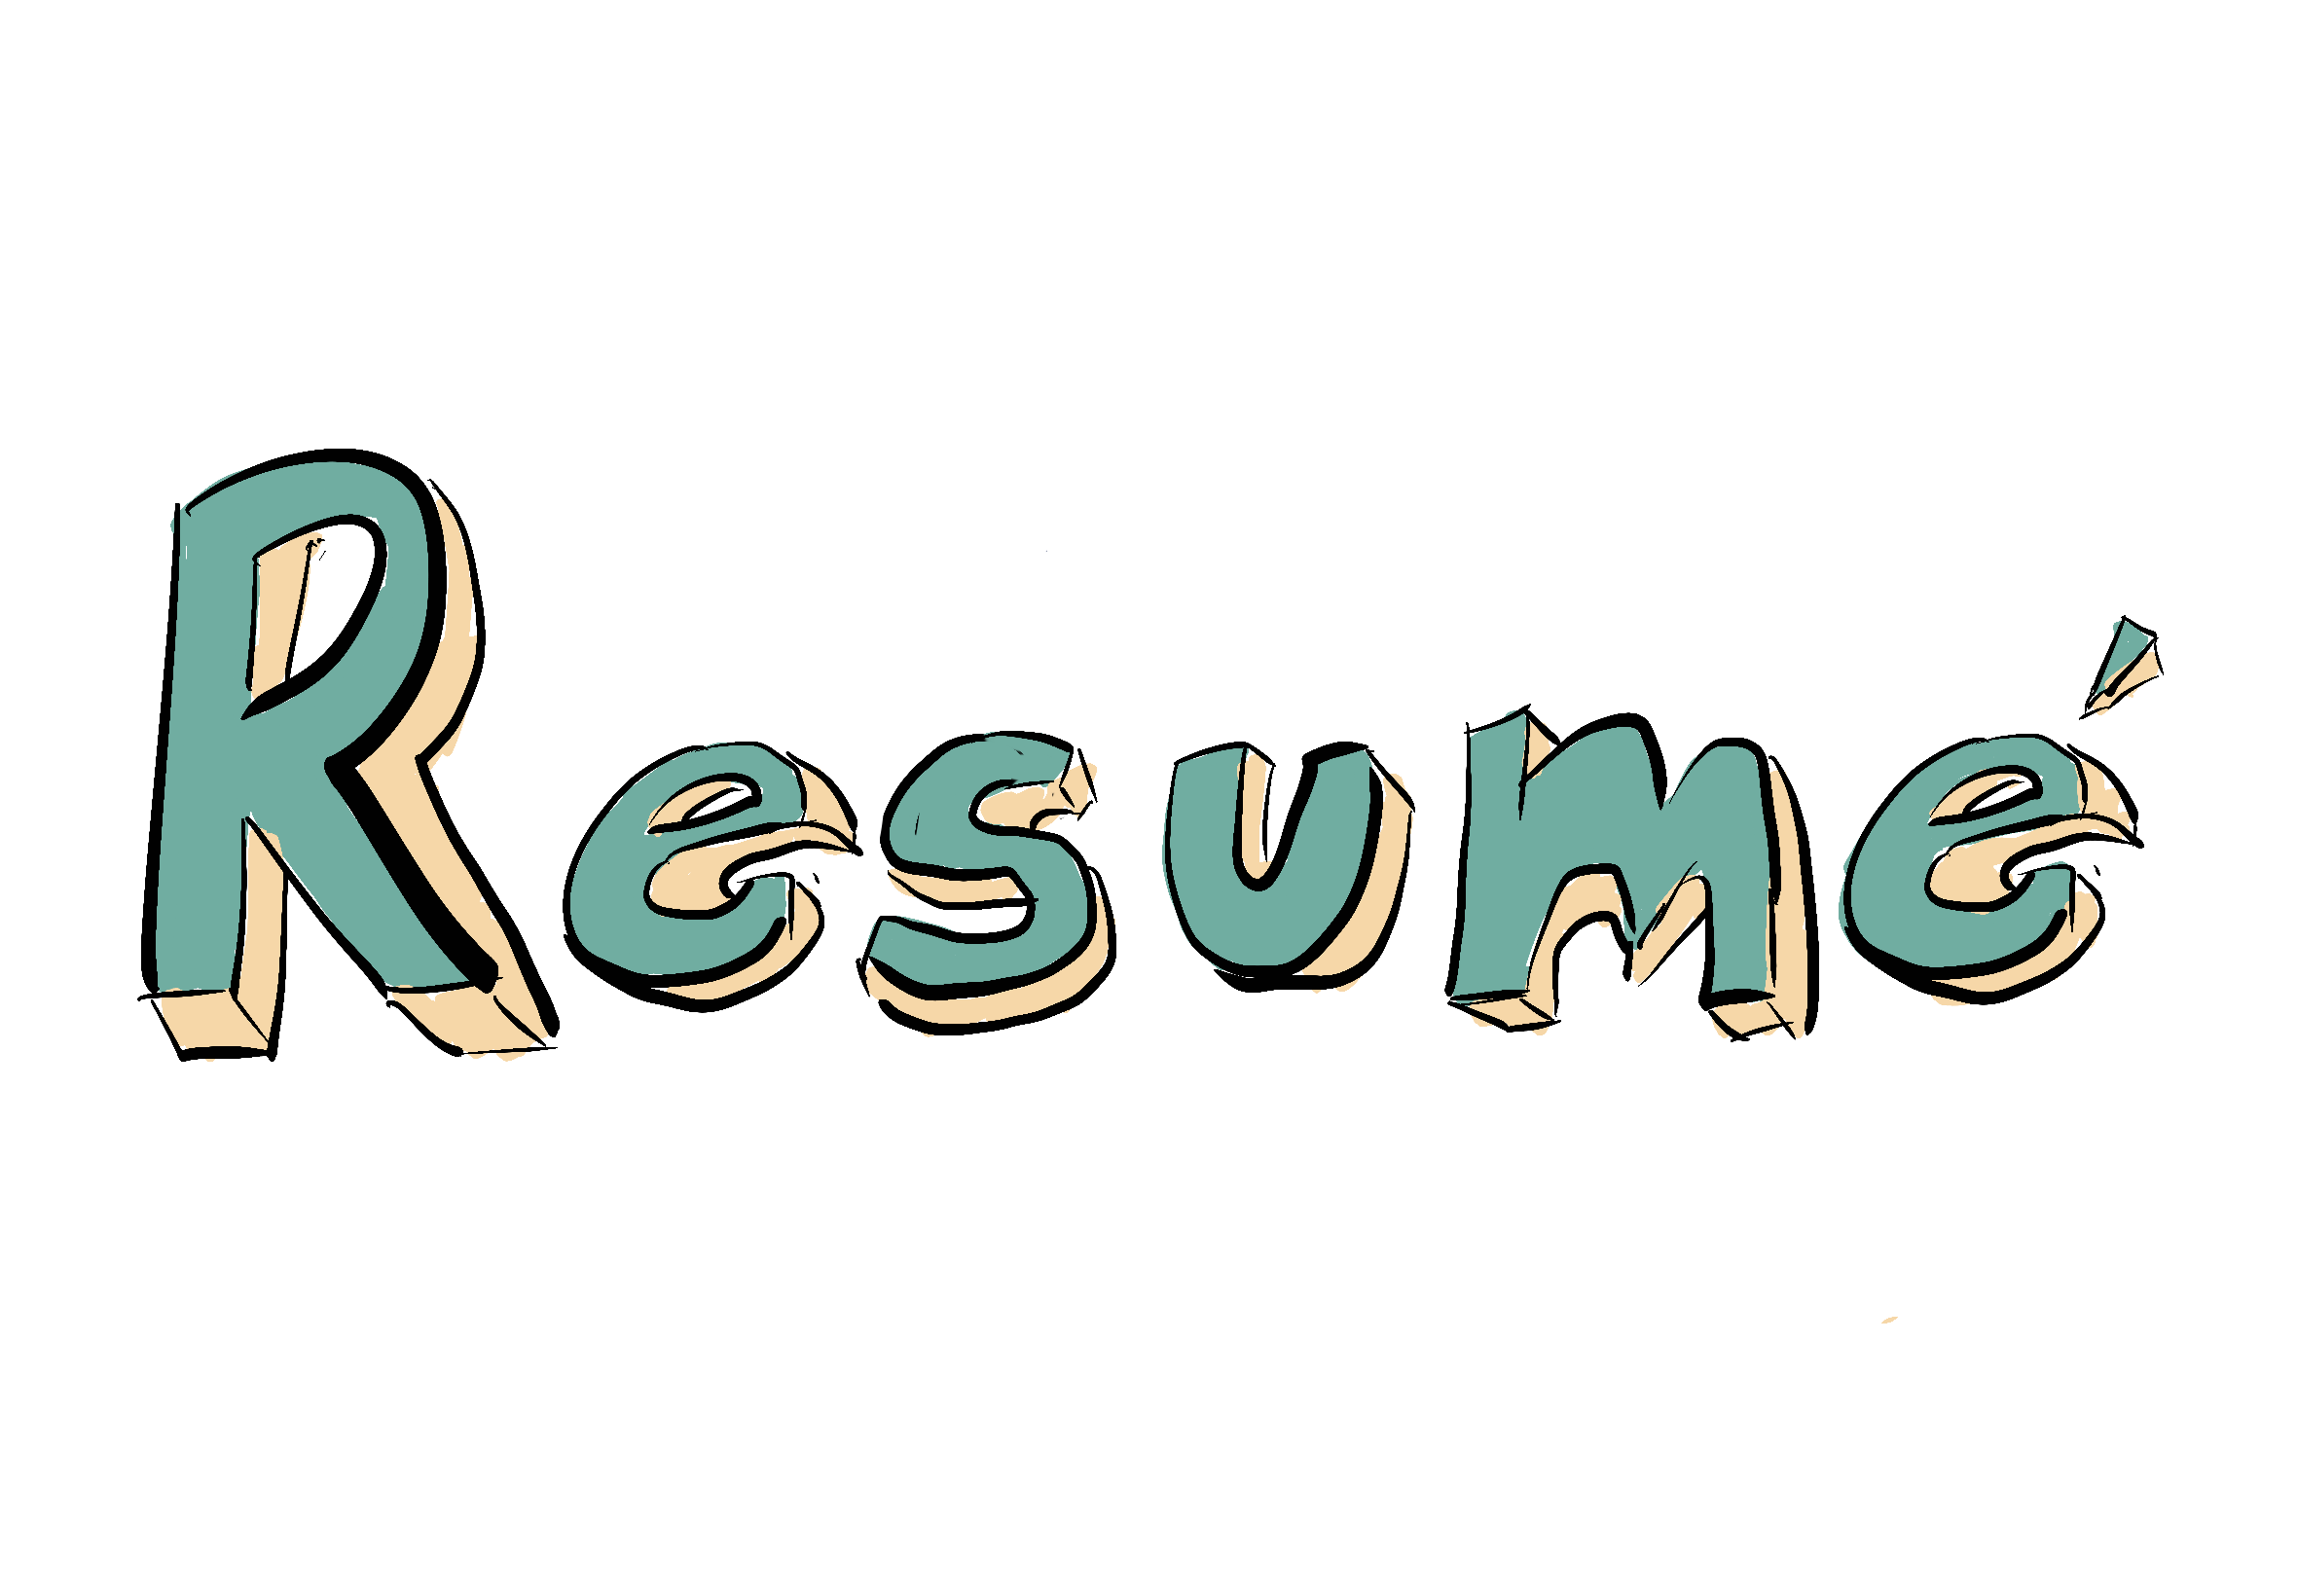 Resumé